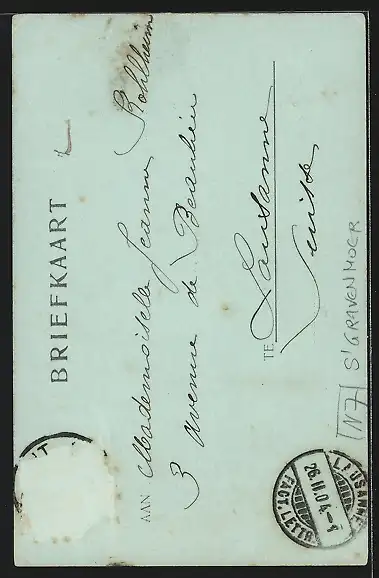 BRIEFKAART
AAN Mademoiselle Jeanne Kohlheim
3 Avenue de Beaulieu
TE Lausanne
Suisse
[N7] S'GRAVENMOER
LAUSANNE
26.II.04.-1
FACT. LETTR.